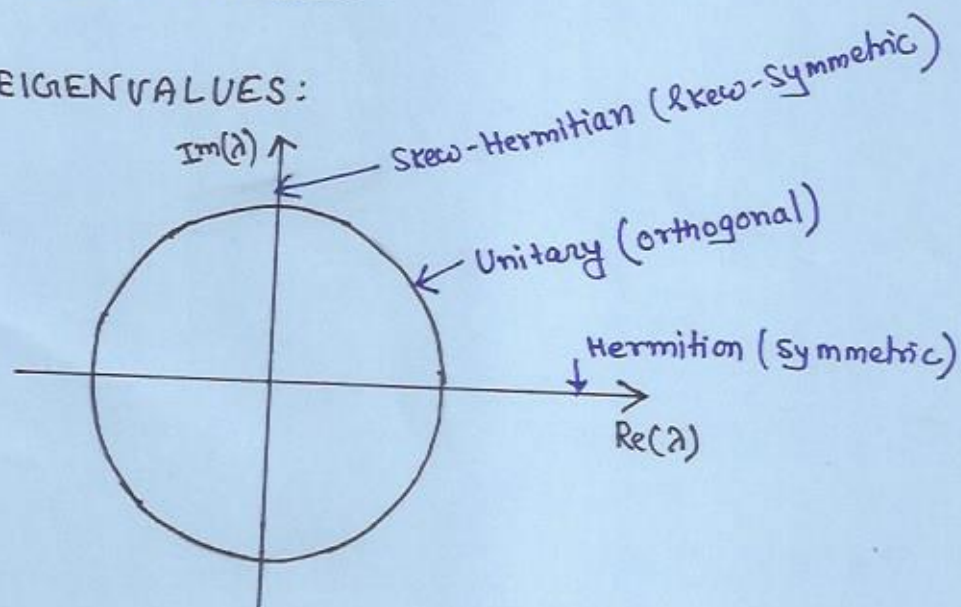 EIGENVALUES:
Im(λ)
Skew-Hermitian (Skew-symmetric)
Unitary (orthogonal)
Hermition (symmetric)
Re(λ)